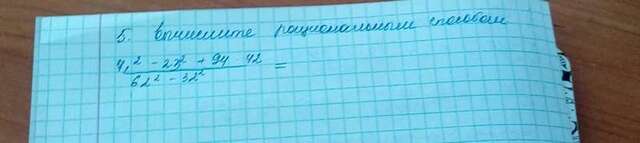 5. Вычислите рациональным способом
71² - 23² + 94 · 42
62² - 32² =